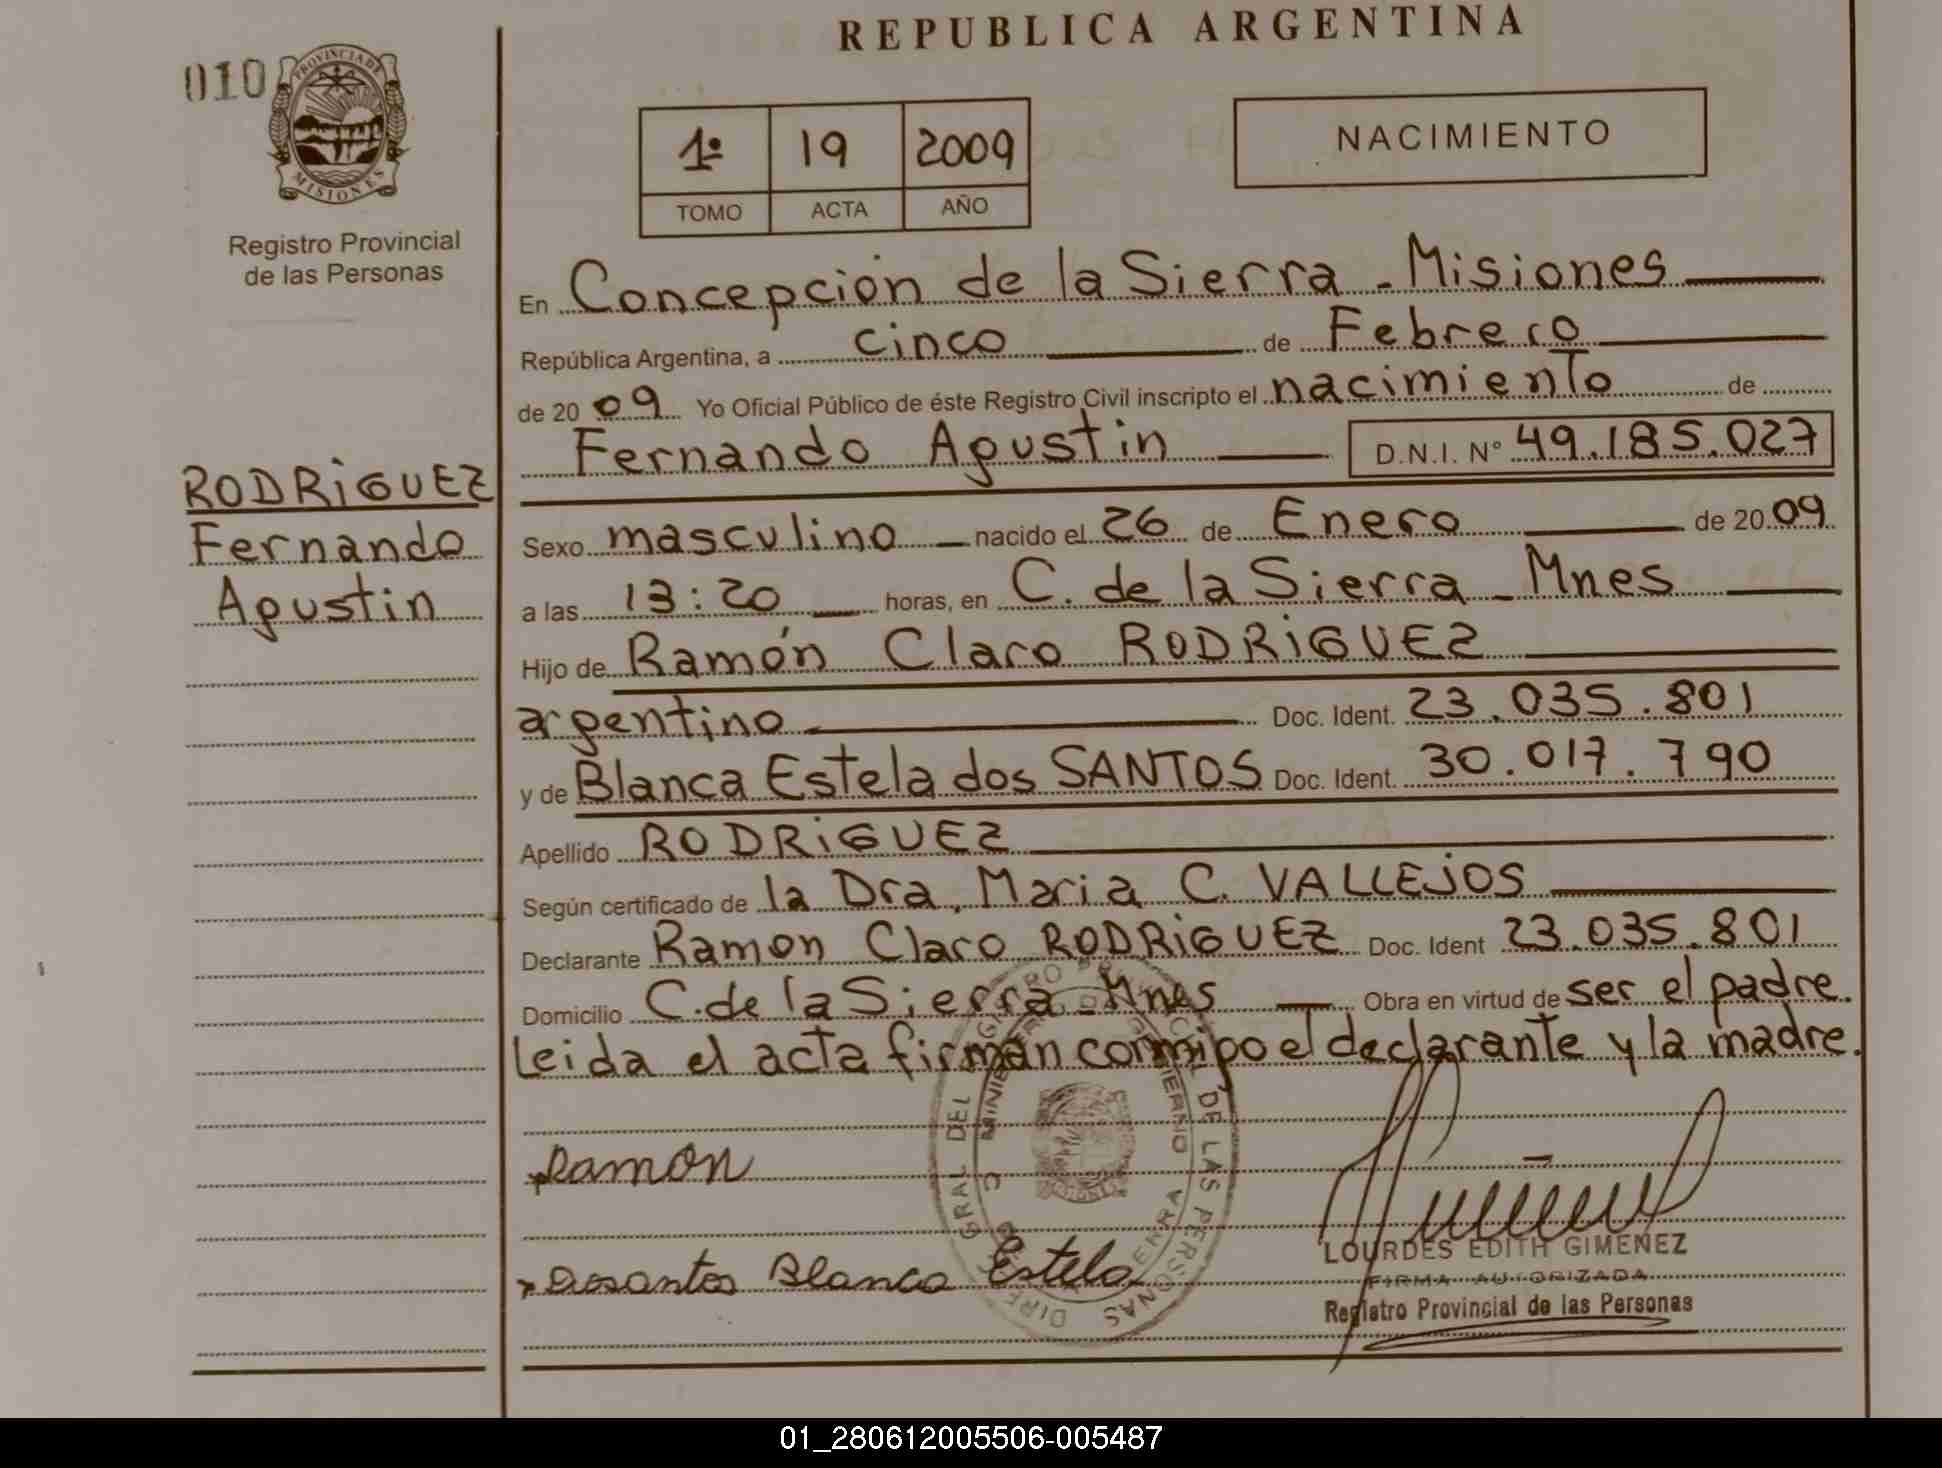 REPUBLICA ARGENTINA
010
PROVINCIA DE
MISIONES
Registro Provincial
de las Personas
1º 19 2009
TOMO ACTA AÑO
NACIMIENTO
En Concepción de la Sierra - Misiones
República Argentina, a cinco de Febrero
de 2009 Yo Oficial Público de éste Registro Civil inscripto el nacimiento de
Fernando Agustin D.N.I. Nº 49.185.027
RODRiGUEZ
Fernando
Agustin
Sexo masculino nacido el 26 de Enero de 2009
a las 13:20 horas, en C. de la Sierra - Mnes
Hijo de Ramón Claro RODRiGUEZ
argentino Doc. Ident. 23.035.801
y de Blanca Estela dos SANTOS Doc. Ident. 30.017.790
Apellido RODRiGUEZ
Según certificado de la Dra. Maria C. VALLEJOS
Declarante Ramon Claro RODRiGUEZ Doc. Ident 23.035.801
Domicilio C. de la Sierra - Mnes Obra en virtud de ser el padre.
Leida el acta firman conmigo el declarante y la madre.
Ramon
dosantos Blanca Estela
GRAL DEL DE LAS PERSONAS
LOURDES EDITH GIMENEZ
FIRMA AUTORIZADA
Registro Provincial de las Personas
01_280612005506-005487